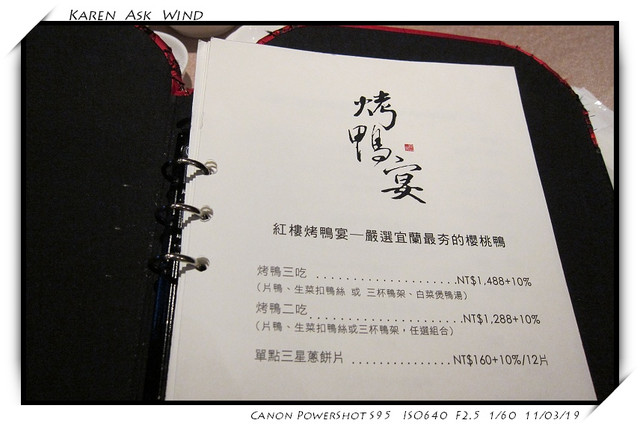 KAREN ASK WIND
烤
鴨
宴
紅樓烤鴨宴—嚴選宜蘭最夯的櫻桃鴨
烤鴨三吃 ....................NT$1,488+10%
(片鴨、生菜扣鴨絲 或 三杯鴨架、白菜煲鴨湯)
烤鴨二吃......................NT$1,288+10%
(片鴨、生菜扣鴨絲或三杯鴨架,任選組合)
單點三星蔥餅片 ...............NT$160+10%/12片
CANON POWERSHOT S95 ISO640 F2.5 1/60 11/03/19